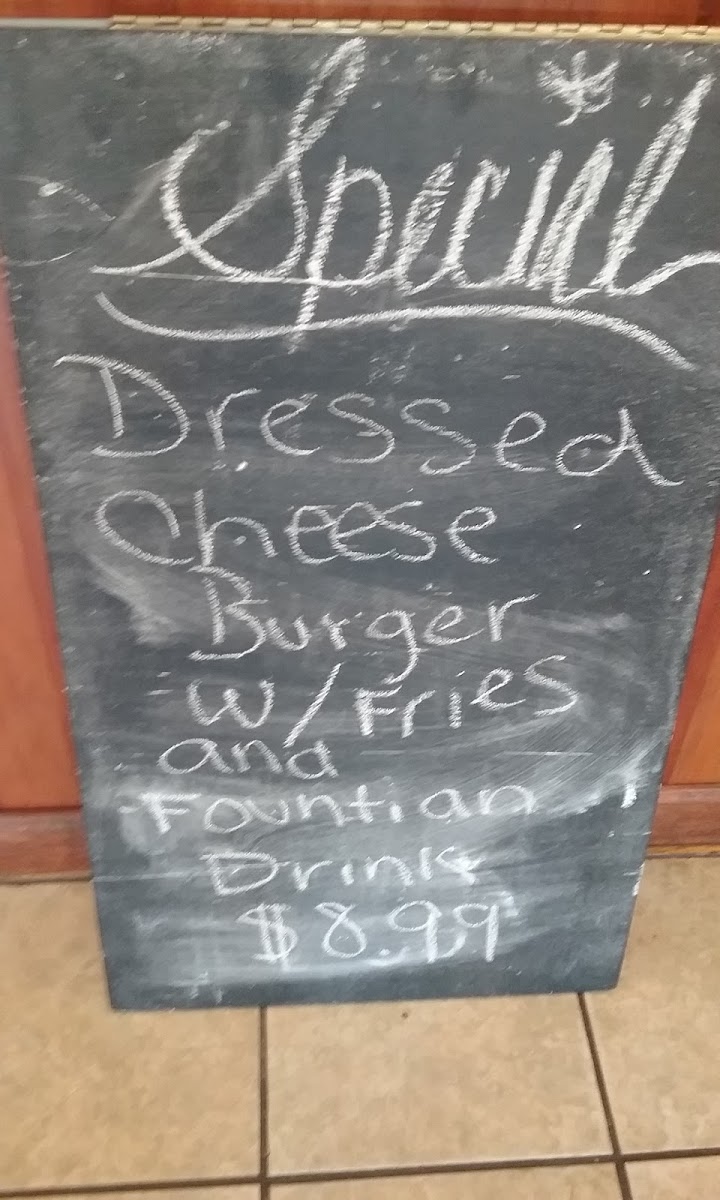 Special
Dressed
Cheese
Burger
W/Fries
and
Fountian
Drink
$8.99